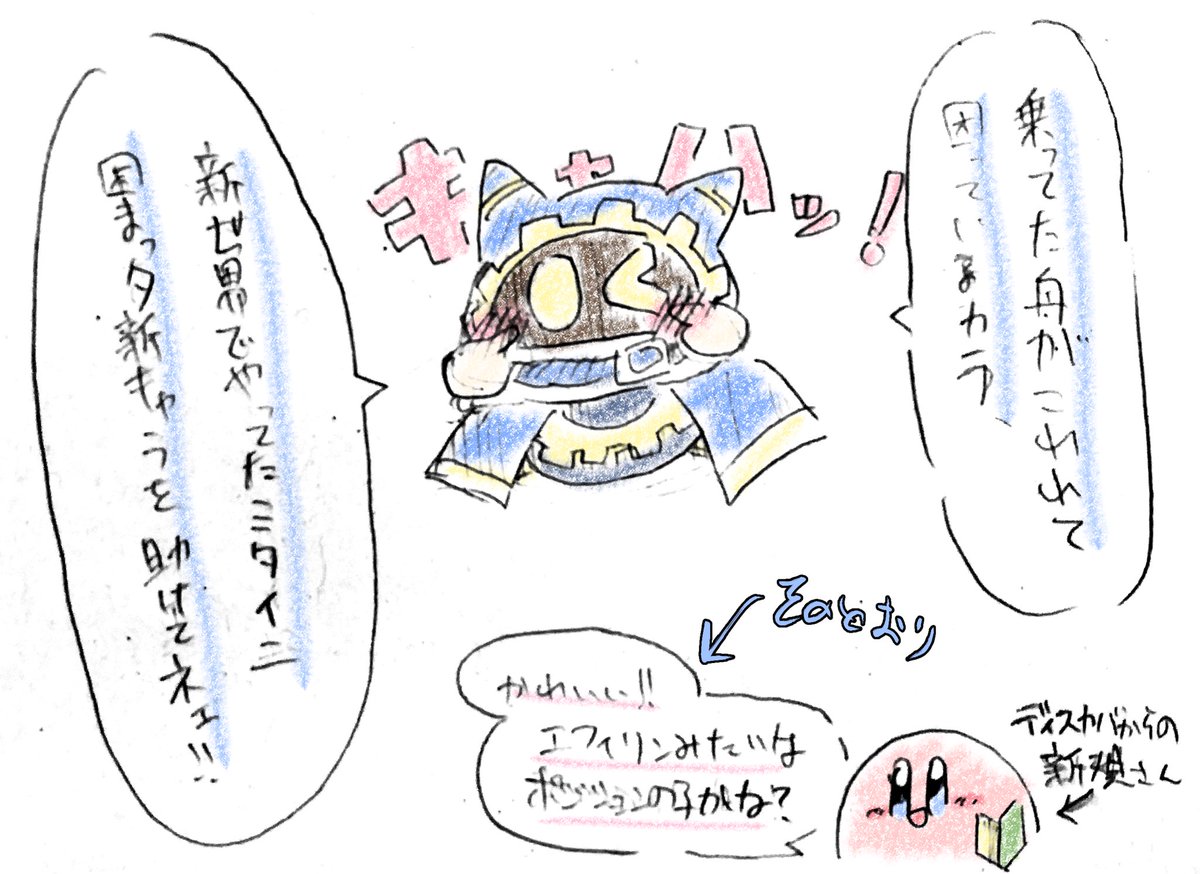 乗ってた舟がこわれて
困っていまカラ
ギャハッ!
新世界でやってたミタイニ
困まっタ新キャラを助けてネェ!!
そのとおり
かわいい!!
エフィリンみたいな
ポジションの子かな?
ディスカバからの
新規さん